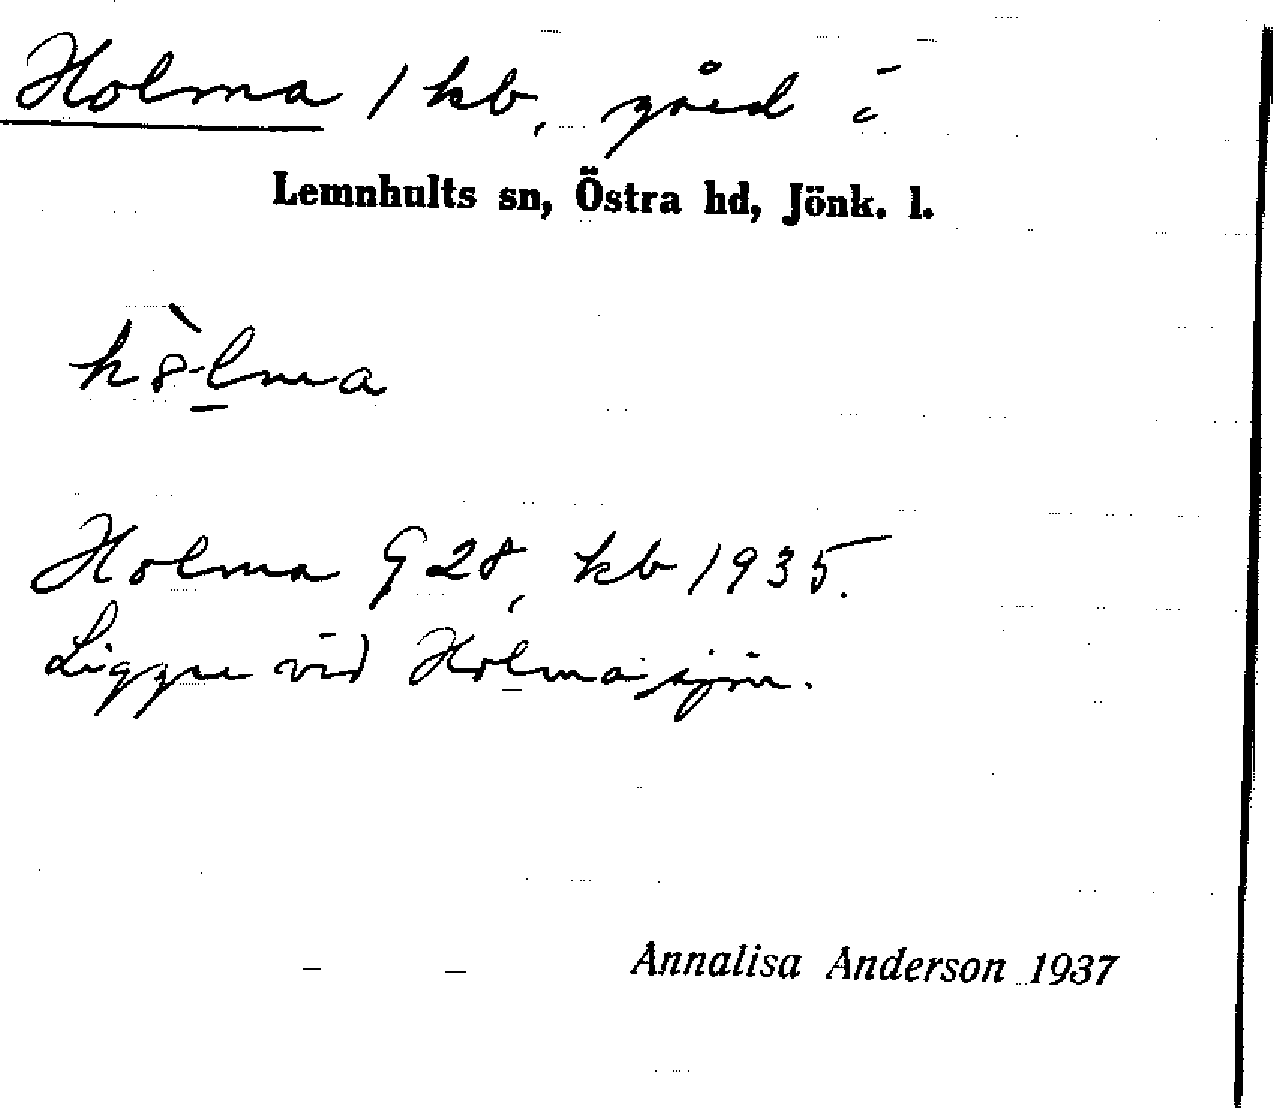 Holma / kb, gård i
Lemnhults sn, Östra hd, Jönk. l.
Holma G 28, kb 1935.
Ligger vid Holmasjön.
Annalisa Anderson 1937